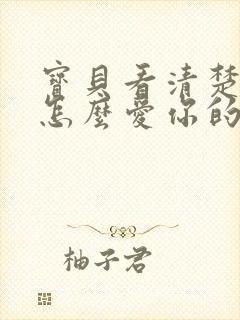 寶貝看清楚
怎麼愛你的
柚子君